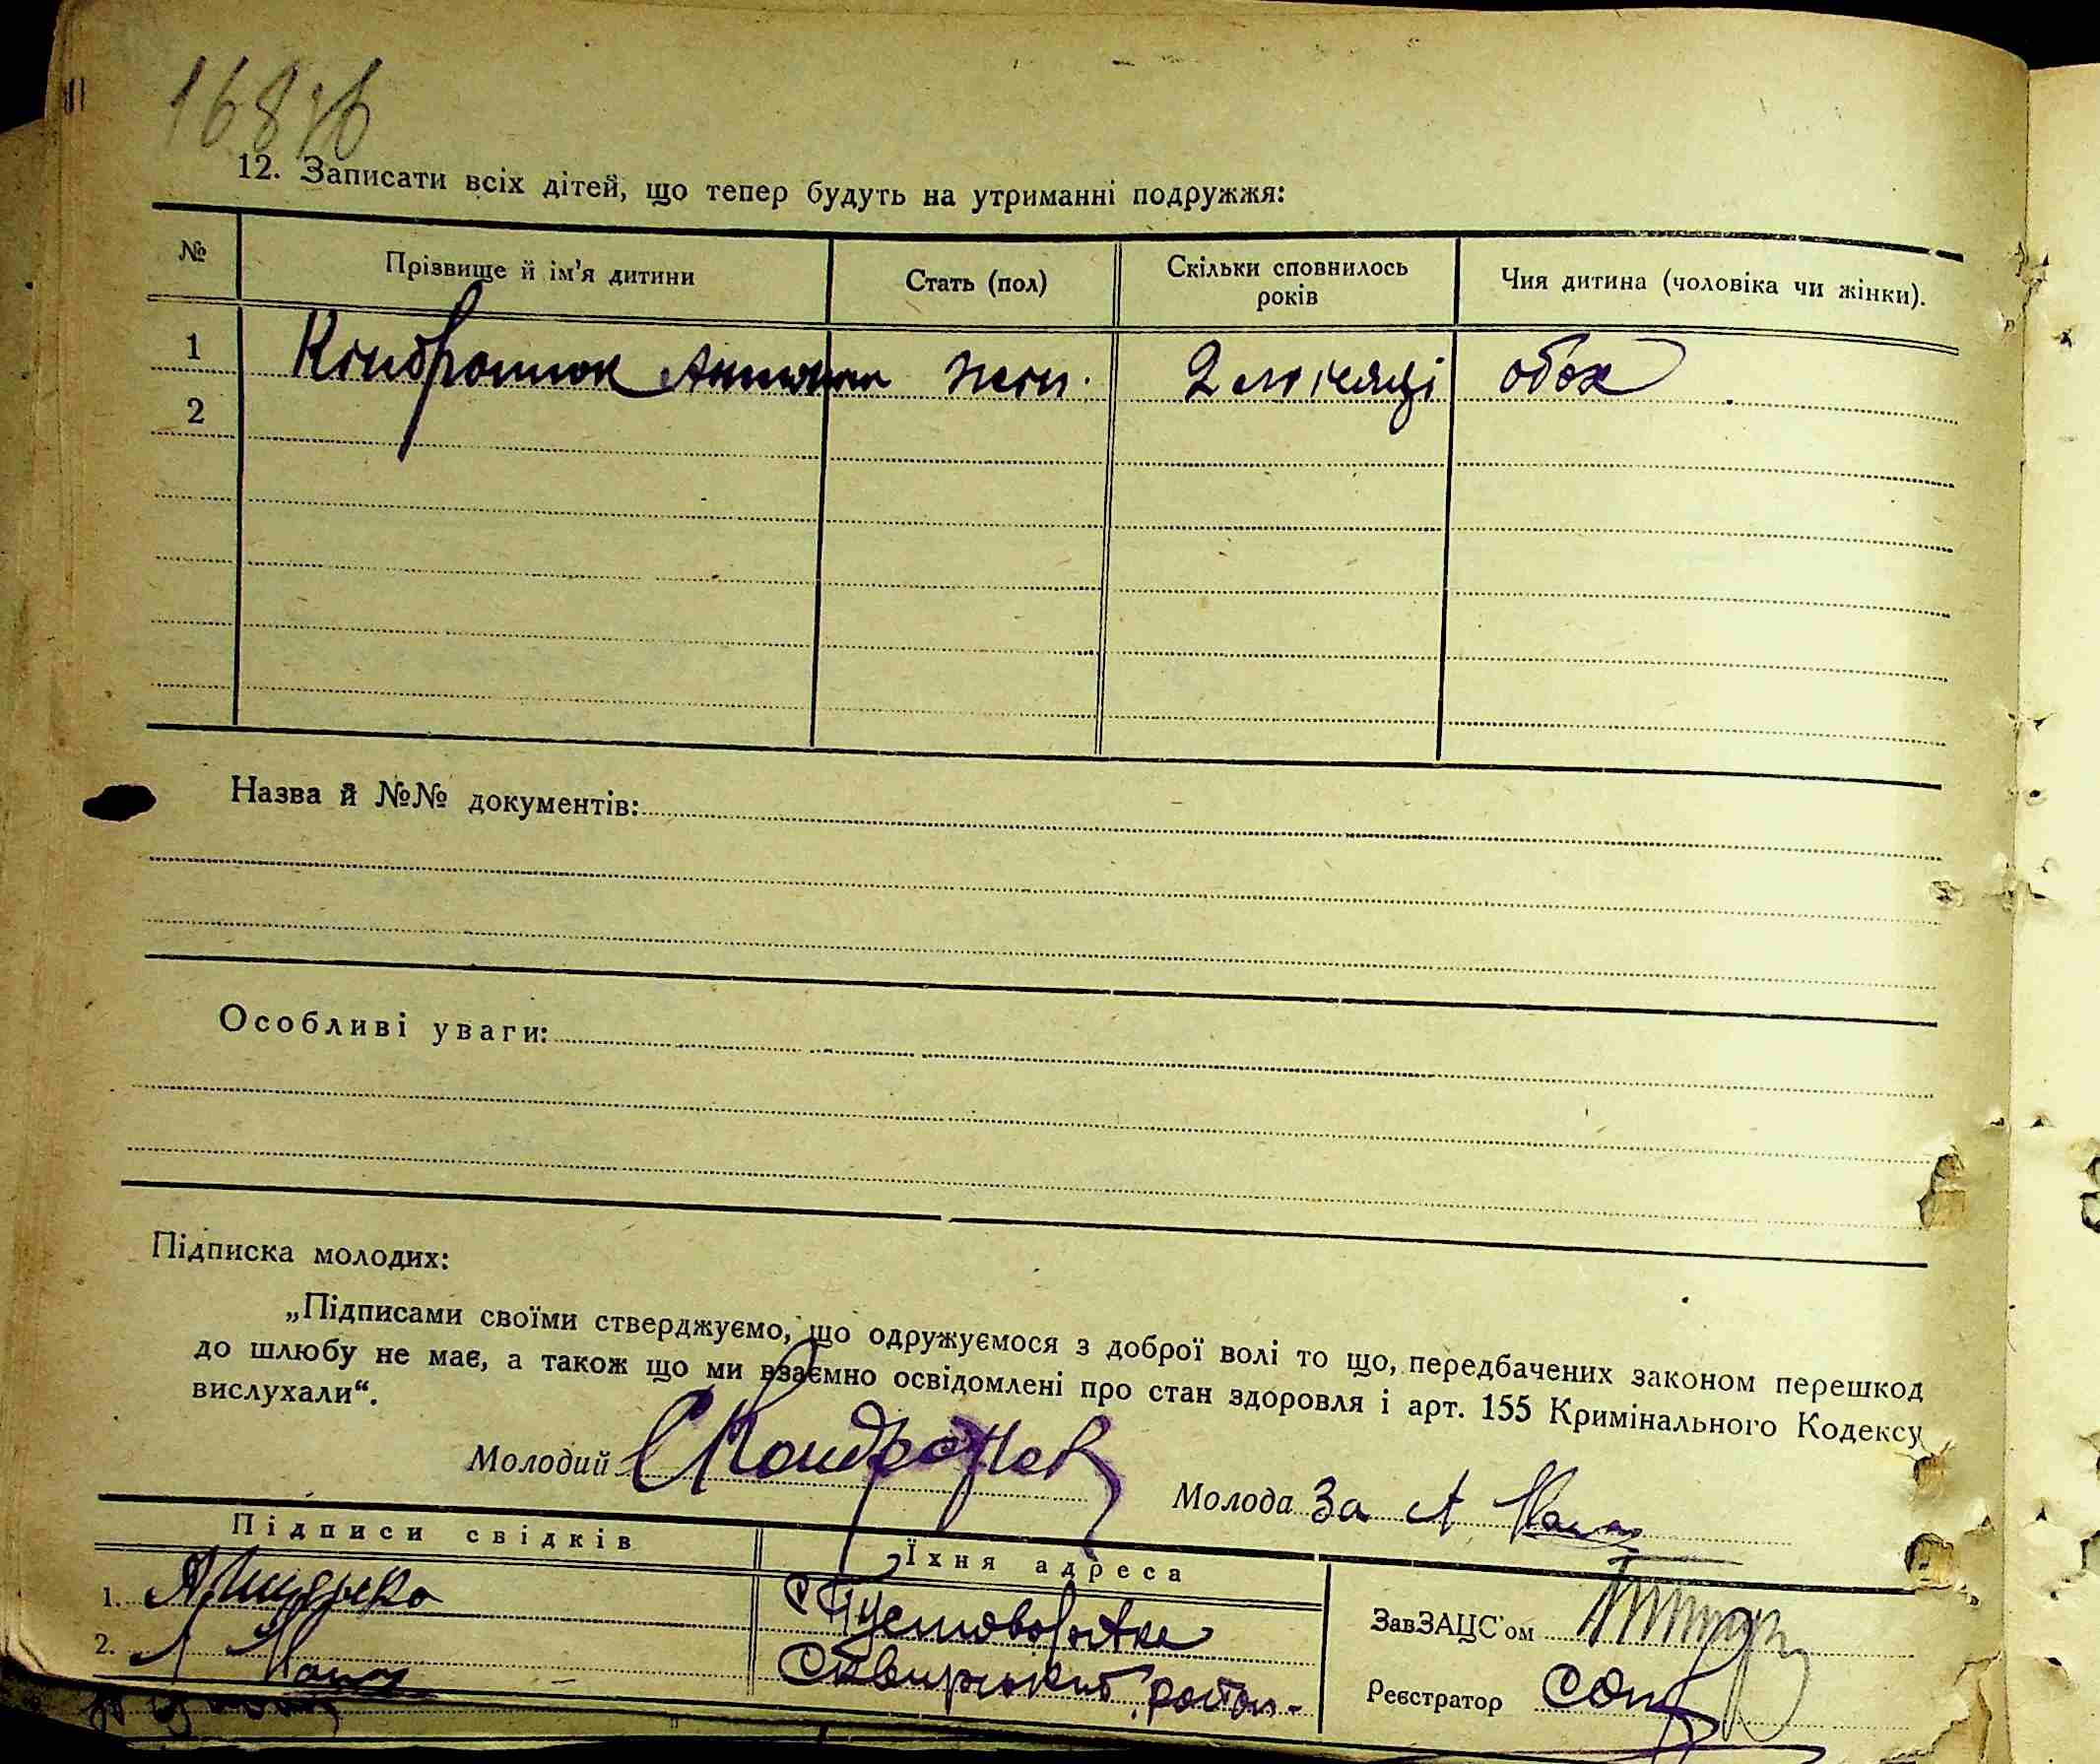 168
12. Записати всіх дітей, що тепер будуть на утриманні подружжя:
№ Прізвище й ім'я дитини Стать (пол) Скільки сповнилось років Чия дитина (чоловіка чи жінки).
1 Кондратюк жен. 2 місяці обох
2
Назва й №№ документів:
Особливі уваги:
Підписка молодих:
„Підписами своїми стверджуємо, що одружуємося з доброї волі то що, передбачених законом перешкод
до шлюбу не має, а також що ми взаємно освідомлені про стан здоровля і арт. 155 Кримінального Кодексу
вислухали“.
Молодий Молода За А
Підписи свідків Їхня адреса
1. с Пустоварівка
ЗавЗАЦС'ом
2. Сквирський район
Реєстратор